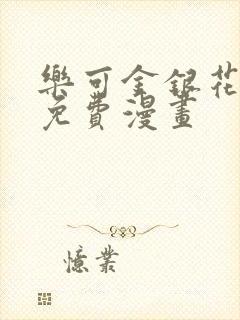 樂可金銀花
免費漫畫
憶業